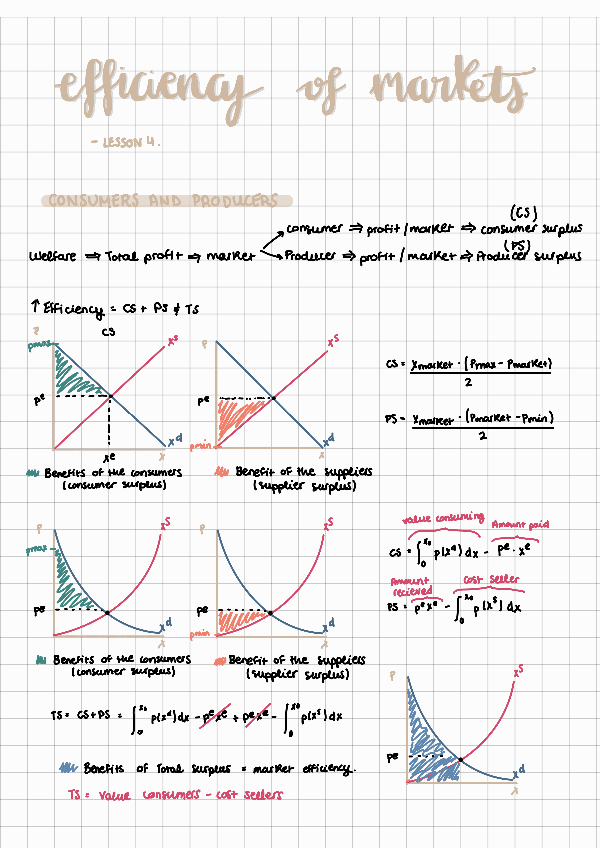 efficiency of markets
- LESSON 4.
CONSUMERS AND PRODUCERS
(CS)
consumer ⇒ profit / market ⇒ consumer surplus
Welfare ⇒ Total profit ⇒ market
(PS)
Producer ⇒ profit / market ⇒ Producer surplus
↑ Efficiency = CS + PS ≠ TS
P
CS
pmax
xˢ
pᵉ
xᵈ
xᵉ
x
P
xˢ
pᵉ
pmin
xᵈ
x
CS = xmarket · (Pmax - Pmarket) / 2
PS = xmarket · (Pmarket - Pmin) / 2
Benefits of the consumers
(consumer surplus)
Benefit of the suppliers
(supplier surplus)
P
xˢ
pmax
pᵉ
xᵈ
x
P
xˢ
pᵉ
pmin
xᵈ
x
value consuming
Amount paid
CS = ∫₀ˣ⁰ p(xᵈ) dx - pᵉ · xᵉ
Amount recieved
cost seller
PS = pᵉxᵉ - ∫₀ˣ⁰ p(xˢ) dx
Benefits of the consumers
(consumer surplus)
Benefit of the suppliers
(supplier surplus)
TS = CS + PS = ∫₀ˣ⁰ p(xᵈ) dx - pᵉxᵉ + pᵉxᵉ - ∫₀ˣ⁰ p(xˢ) dx
P
xˢ
pᵉ
xᵈ
x
Benefits of Total surplus = market efficiency.
TS = value consumers - cost sellers